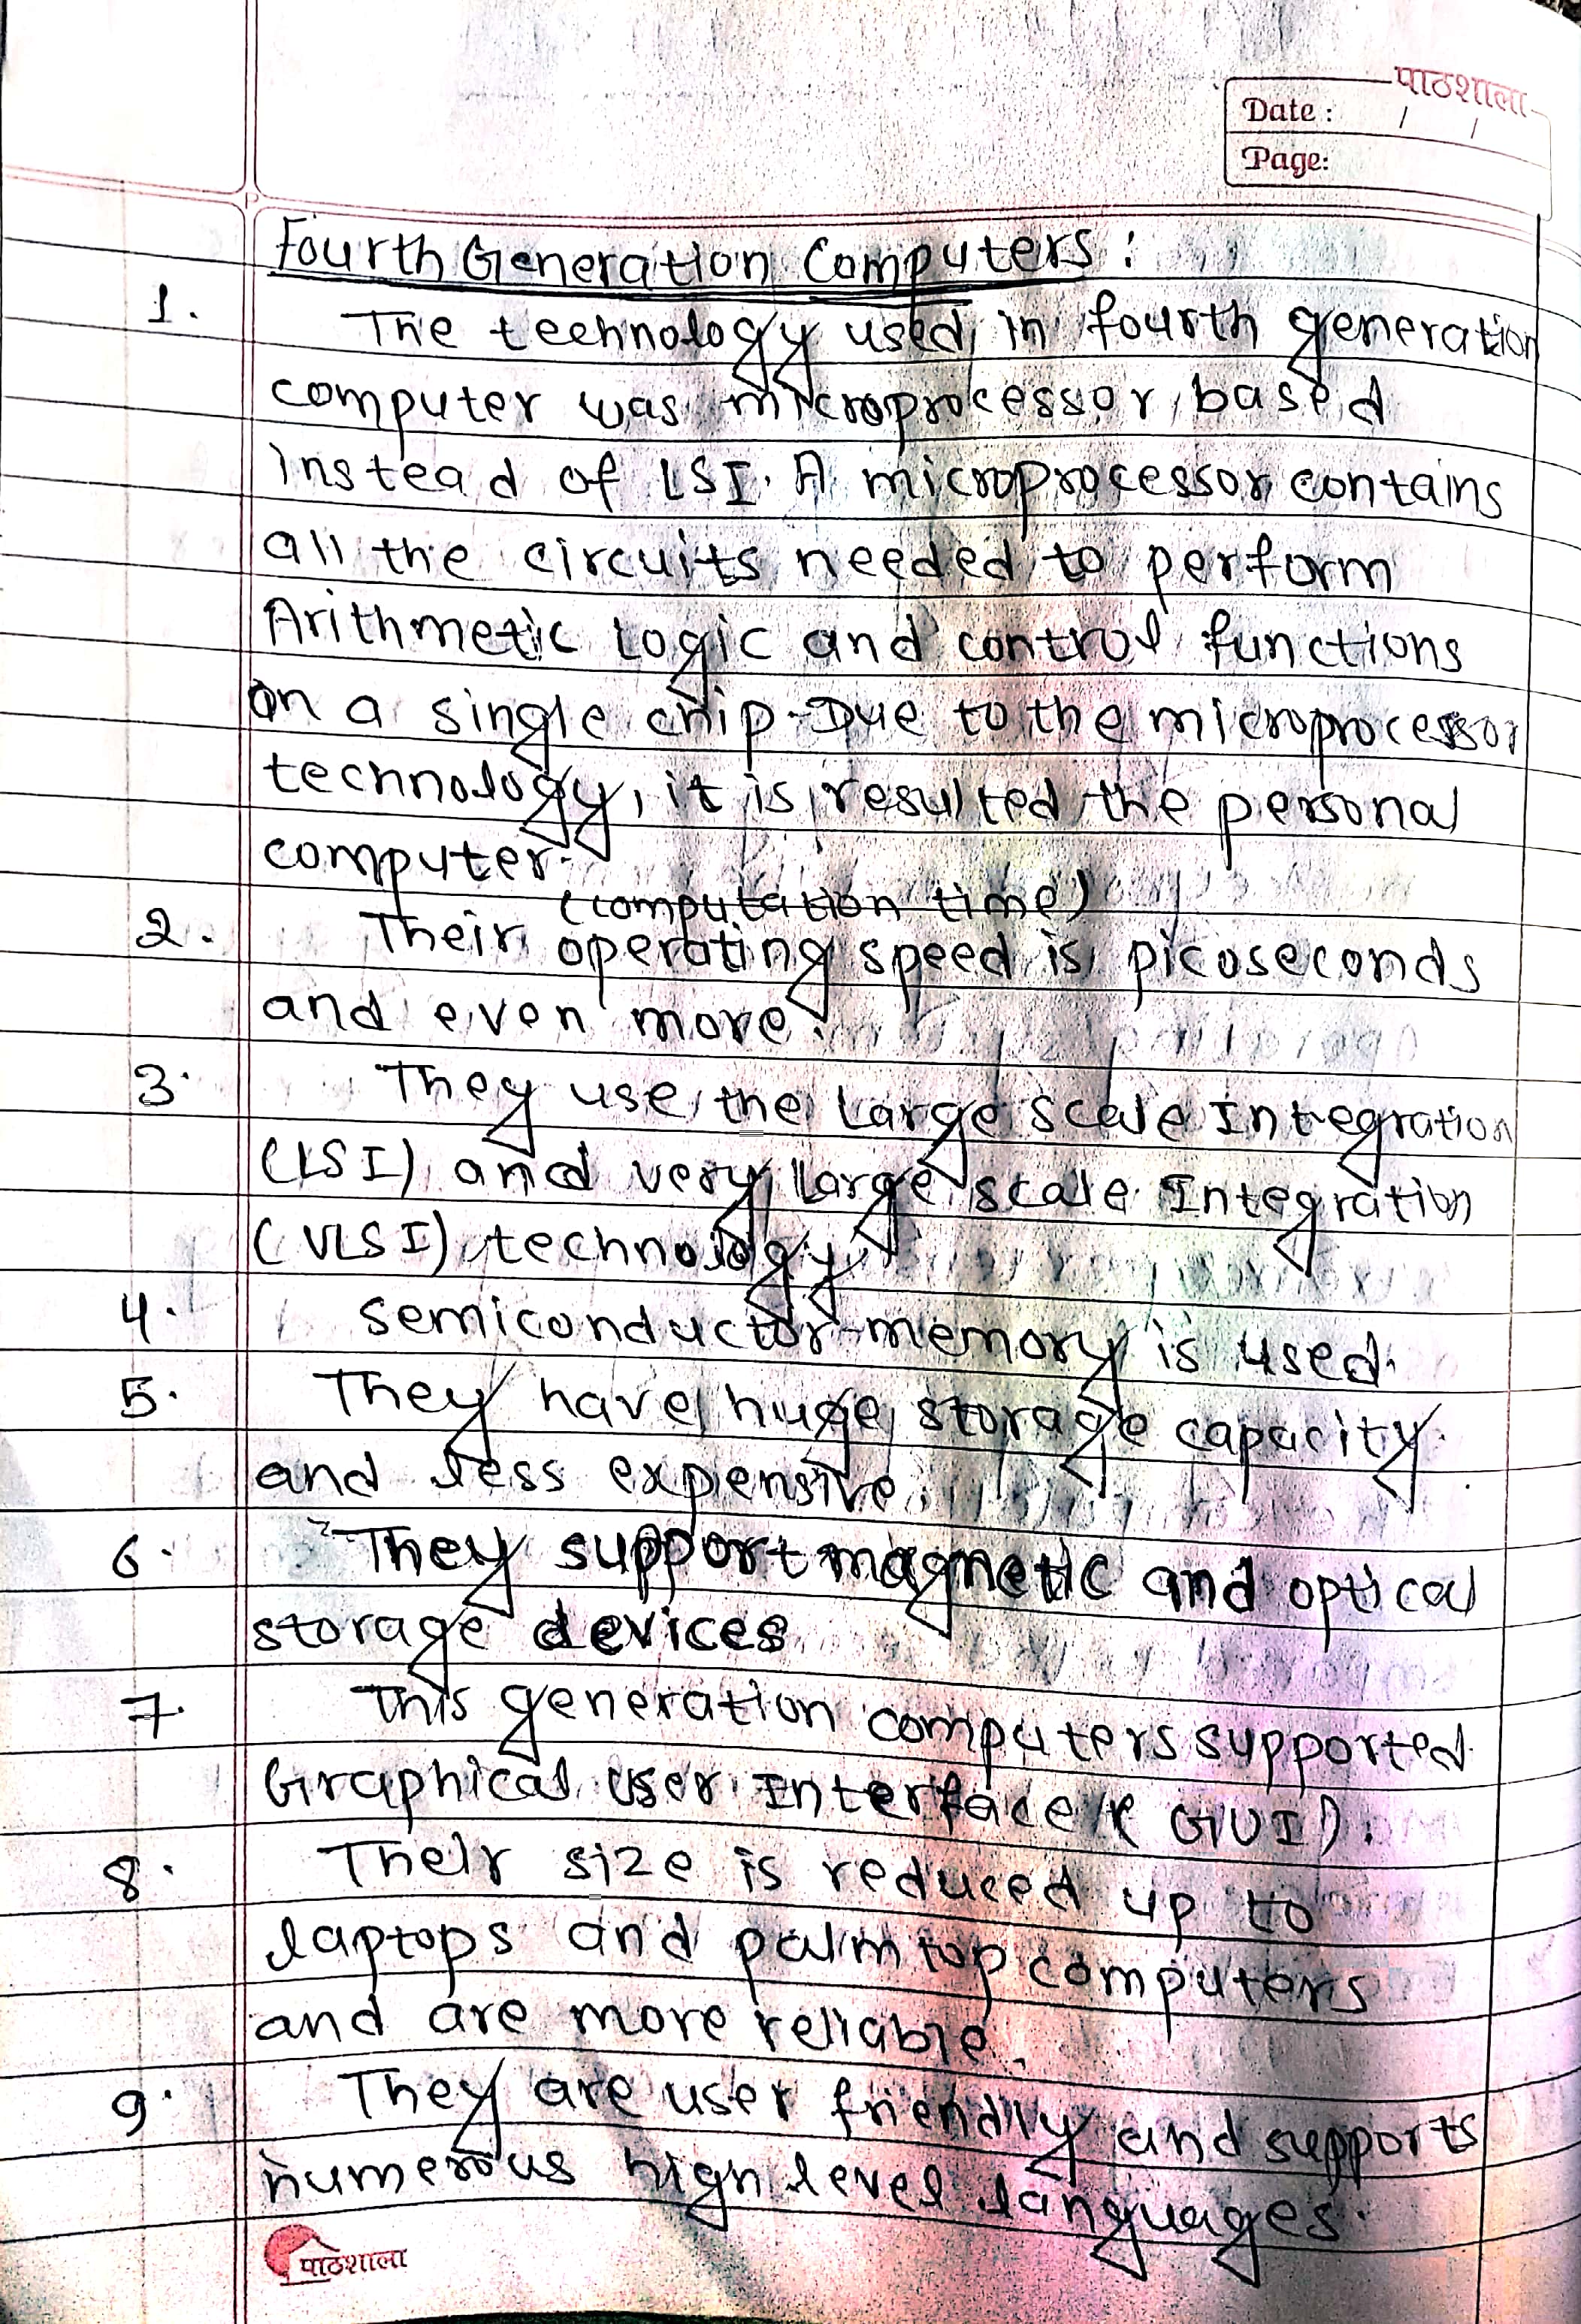 पाठशाला
Date : / /
Page:
Fourth Generation Computers :
1. The technology used in fourth generation
computer was microprocessor based
instead of LSI. A microprocessor contains
all the circuits needed to perform
Arithmetic Logic and control functions
on a single chip. Due to the microprocessor
technology, it is resulted the personal
computer.
(computation time)
2. Their operating speed is picoseconds
and even more.
3. They use the Large Scale Integration
(LSI) and very large scale Integration
(VLSI) technology
4. semiconductor memory is used.
5. They have huge storage capacity
and less expensive.
6. They support magnetic and optical
storage devices
7. This generation computers supported
Graphical user Interface (GUI).
8. Their size is reduced up to
laptops and palm top computers
and are more reliable.
9. They are user friendly and supports
numerous high level languages.
पाठशाला